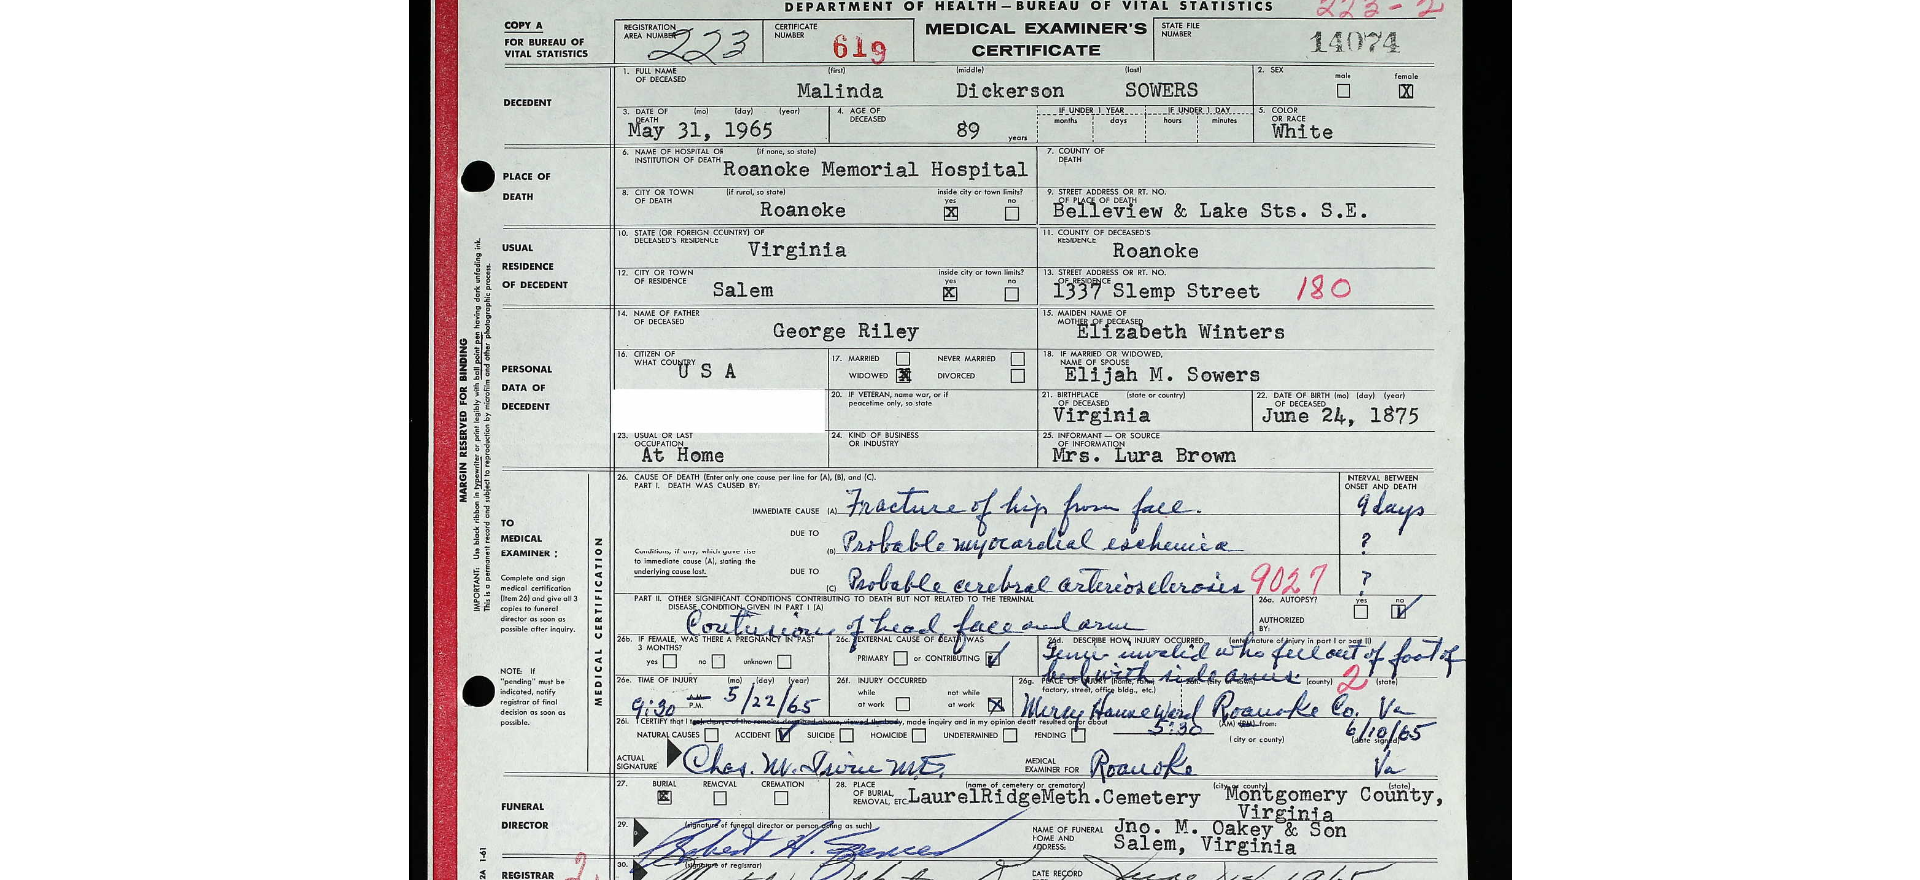 DEPARTMENT OF HEALTH—BUREAU OF VITAL STATISTICS 223-2
COPY A
FOR BUREAU OF
VITAL STATISTICS
REGISTRATION
AREA NUMBER 223
CERTIFICATE
NUMBER 619
MEDICAL EXAMINER'S
CERTIFICATE
STATE FILE
NUMBER 14074
DECEDENT
1. FULL NAME OF DECEASED (first) (middle) (last)
Malinda Dickerson SOWERS
2. SEX male female X
3. DATE OF DEATH (mo) (day) (year)
May 31, 1965
4. AGE OF DECEASED
89 years
IF UNDER 1 YEAR months days
IF UNDER 1 DAY hours minutes
5. COLOR OR RACE
White
PLACE OF
DEATH
6. NAME OF HOSPITAL OR INSTITUTION OF DEATH (if none, so state)
Roanoke Memorial Hospital
7. COUNTY OF DEATH
8. CITY OR TOWN OF DEATH (if rural, so state)
Roanoke
inside city or town limits? yes X no
9. STREET ADDRESS OR RT. NO. OF PLACE OF DEATH
Belleview & Lake Sts. S.E.
USUAL
RESIDENCE
OF DECEDENT
10. STATE (OR FOREIGN COUNTRY) OF DECEASED'S RESIDENCE
Virginia
11. COUNTY OF DECEASED'S RESIDENCE
Roanoke
12. CITY OR TOWN OF RESIDENCE
Salem
inside city or town limits? yes X no
13. STREET ADDRESS OR RT. NO. OF RESIDENCE
1337 Slemp Street 180
PERSONAL
DATA OF
DECEDENT
14. NAME OF FATHER OF DECEASED
George Riley
15. MAIDEN NAME OF MOTHER OF DECEASED
Elizabeth Winters
16. CITIZEN OF WHAT COUNTRY
U S A
17. MARRIED NEVER MARRIED
WIDOWED X DIVORCED
18. IF MARRIED OR WIDOWED, NAME OF SPOUSE
Elijah M. Sowers
20. IF VETERAN, name war, or if peacetime only, so state
21. BIRTHPLACE OF DECEASED (state or country)
Virginia
22. DATE OF BIRTH (mo) (day) (year) OF DECEASED
June 24, 1875
23. USUAL OR LAST OCCUPATION
At Home
24. KIND OF BUSINESS OR INDUSTRY
25. INFORMANT — OR SOURCE OF INFORMATION
Mrs. Lura Brown
MARGIN RESERVED FOR BINDING
IMPORTANT: Use black ribbon in typewriter or print legibly with ball point pen having dark unfading ink.
This is a permanent record and subject to reproduction by microfilm and other photographic process.
TO
MEDICAL
EXAMINER:
Complete and sign
medical certification
(Item 26) and give all 3
copies to funeral
director as soon as
possible after inquiry.
NOTE: If
"pending" must be
indicated, notify
registrar of final
decision as soon as
possible.
MEDICAL CERTIFICATION
26. CAUSE OF DEATH (Enter only one cause per line for (A), (B), and (C).
PART I. DEATH WAS CAUSED BY:
INTERVAL BETWEEN
ONSET AND DEATH
IMMEDIATE CAUSE (A) Fracture of hip from fall. 9 days
DUE TO
(B) Probable myocardial eschemica ?
Conditions, if any, which gave rise
to immediate cause (A), stating the
underlying cause last.
DUE TO
(C) Probable cerebral arteriosclerosis 9027 ?
PART II. OTHER SIGNIFICANT CONDITIONS CONTRIBUTING TO DEATH BUT NOT RELATED TO THE TERMINAL
DISEASE CONDITION GIVEN IN PART I (A)
Contusions of head face and arm
26a. AUTOPSY? yes no
AUTHORIZED
BY:
26b. IF FEMALE, WAS THERE A PREGNANCY IN PAST
3 MONTHS?
yes no unknown
26c. EXTERNAL CAUSE OF DEATH WAS
PRIMARY or CONTRIBUTING
26d. DESCRIBE HOW INJURY OCCURRED (enter nature of injury in part I or part II)
invalid who fell out of foot of
bed with side arms 2
26e. TIME OF INJURY (mo) (day) (year)
9:30 P.M. 5/22/65
26f. INJURY OCCURRED
while at work not while at work X
26g. PLACE OF INJURY (home, farm, factory, street, office bldg., etc.)
(county) (state)
Mercy House Ward Roanoke Co. Va
26i. I CERTIFY that I took charge of the remains described above, viewed the body, made inquiry and in my opinion death resulted on or about 5:30 (AM) (PM) from:
NATURAL CAUSES ACCIDENT SUICIDE HOMICIDE UNDETERMINED PENDING
(city or county) 6/10/65 (date signed)
ACTUAL
SIGNATURE Chas. M. Irvin M.E.
MEDICAL
EXAMINER FOR Roanoke Va
FUNERAL
DIRECTOR
27. BURIAL X REMOVAL CREMATION
28. PLACE OF BURIAL, REMOVAL, ETC. (name of cemetery or crematory) (city or county) (state)
LaurelRidgeMeth.Cemetery Montgomery County,
Virginia
29. (signature of funeral director or person acting as such)
Robert H. Spencer
NAME OF FUNERAL
HOME AND
ADDRESS:
Jno. M. Oakey & Son
Salem, Virginia
2A 1-61
REGISTRAR 2
30. (signature of registrar)
DATE RECORD
June 1965